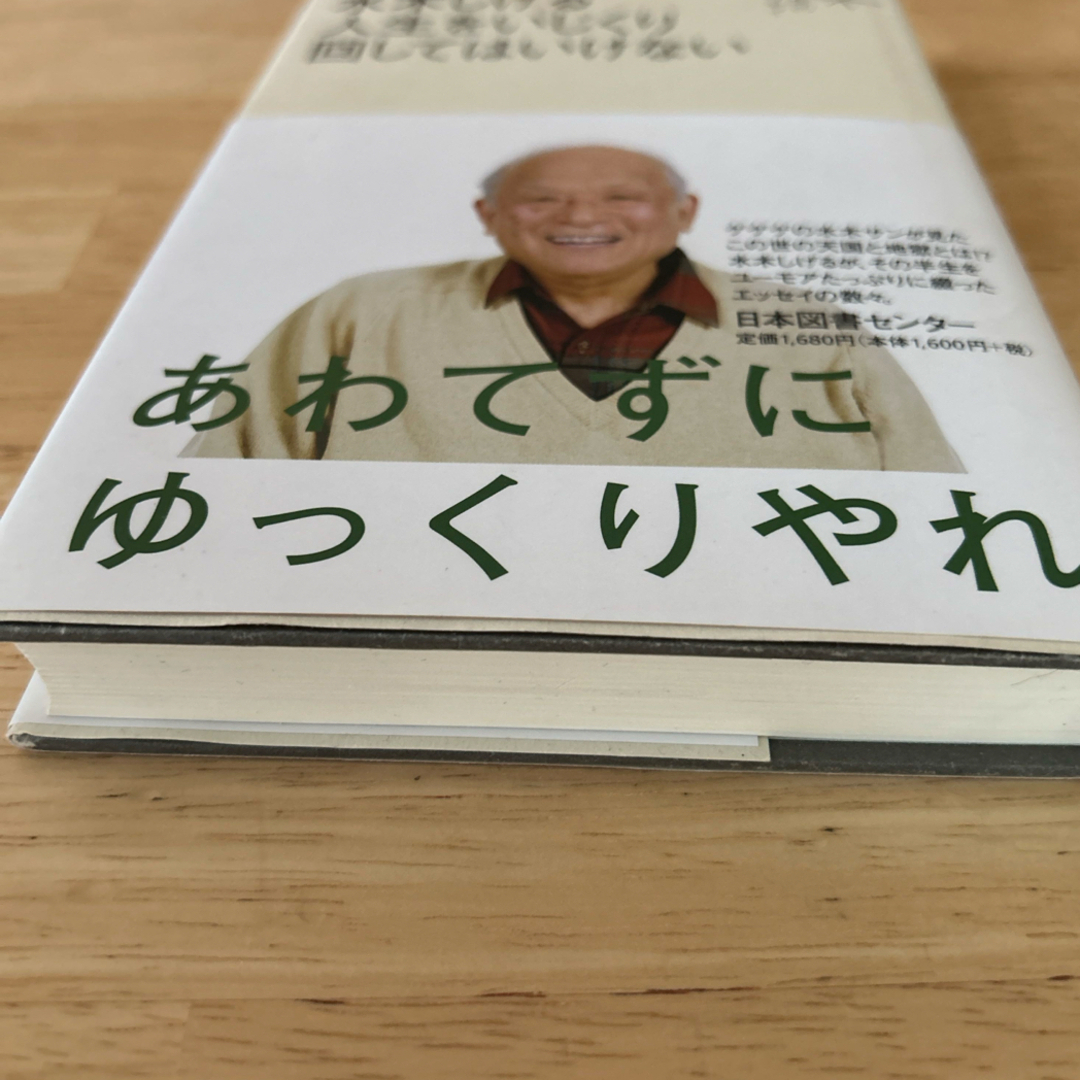 水木しげる
人生をいじくり
回してはいけない
ゲゲゲの水木サンが見た
この世の天国と地獄とは!?
水木しげるが、その半生を
ユーモアたっぷりに綴った
エッセイの数々。
日本図書センター
定価1,680円(本体1,600円+税)
あわてずに
ゆっくりやれ